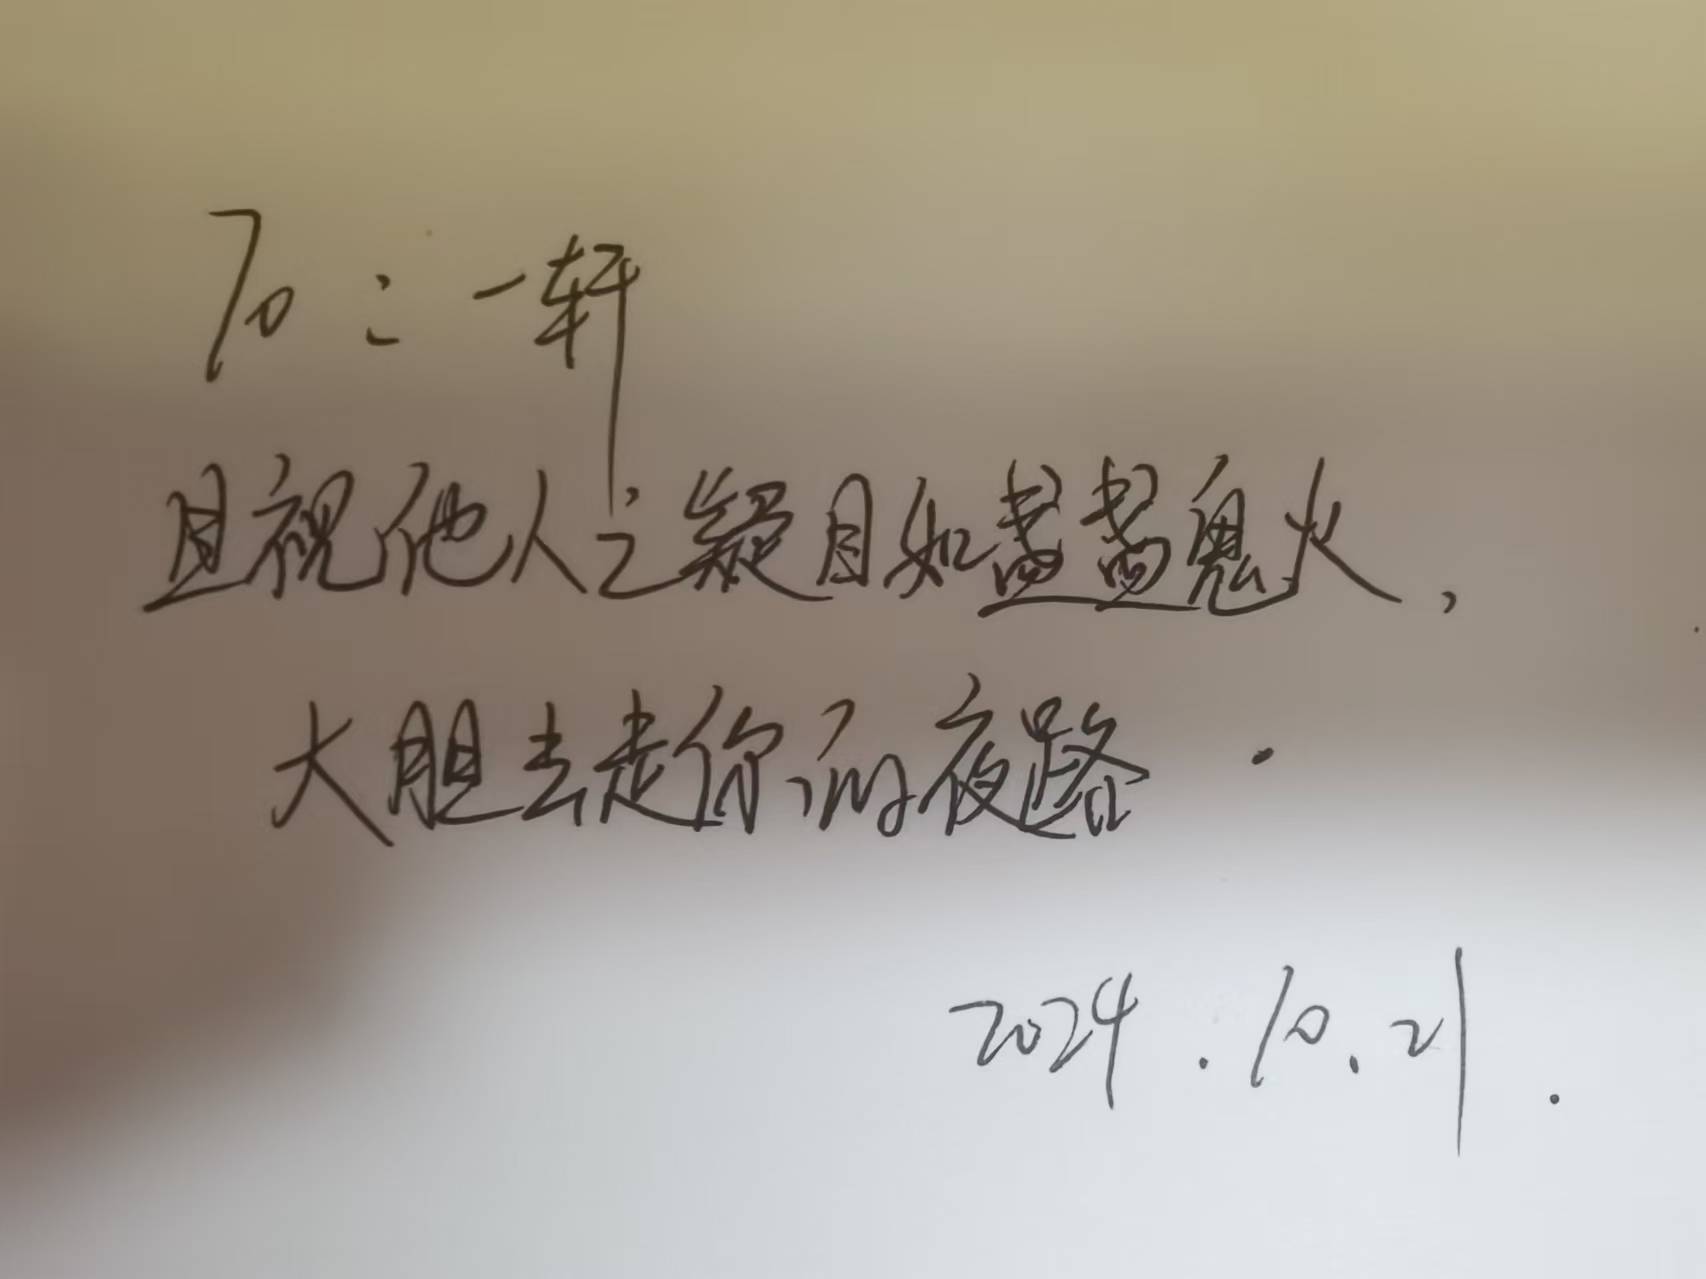 To：一轩
且视他人之疑目如盏盏鬼火，
大胆去走你的夜路.
2024.10.21.